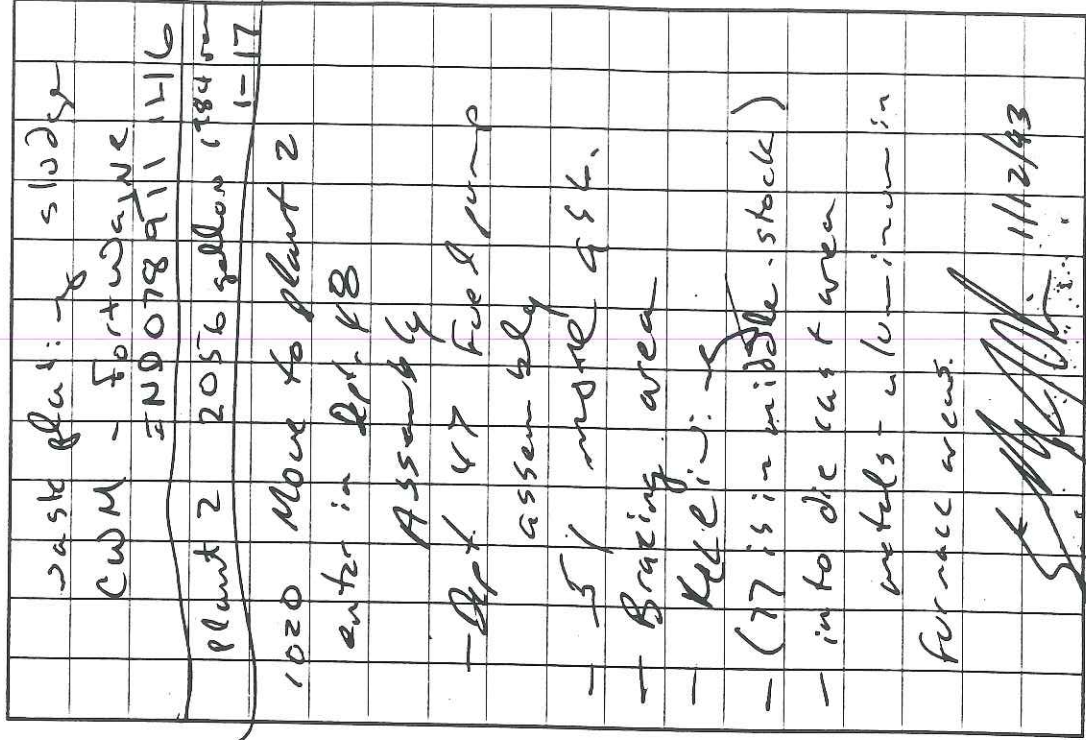 waste plating sludge
CWM - Fort Wayne
IND 078911 146
Plant 2 2056 gallon 1984
1-17
1020 Move to plant 2
enter in Dept 48
Assembly
- Dept 47 Fuel pump
assembly
- 51 more ass.
- Brazing area
- Receiving
- (77 is in middle - stock)
- into die cast area
metals - aluminum in
furnace areas.
11/12/93